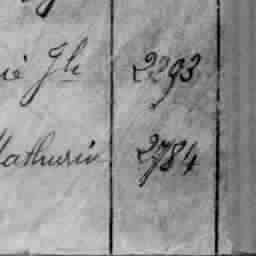 Jh 2293
Mathurin 2784